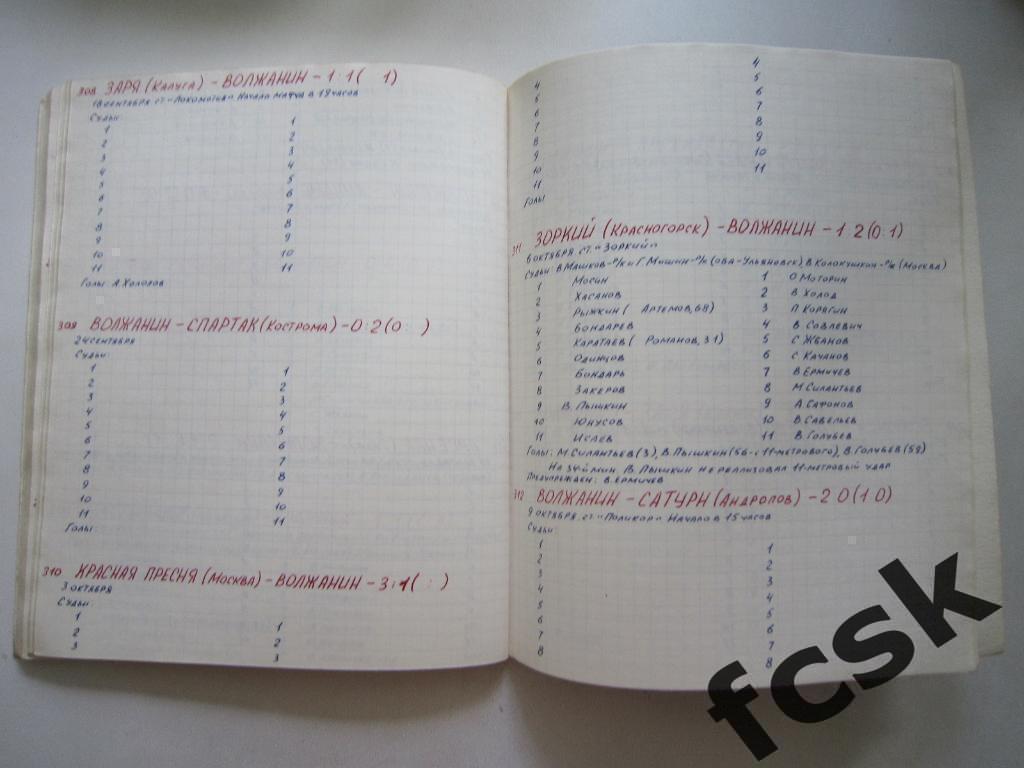 308 ЗАРЯ (КАЛУГА) - ВОЛЖАНИН - 1:1 ( 1)
18 СЕНТЯБРЯ СТ. "ЛОКОМОТИВ" НАЧАЛО МАТЧА В 18 ЧАСОВ
СУДЬИ:
1 1
2 2
3 3
4 4
5 5
6 6
7 7
8 8
9 9
10 10
11 11
ГОЛЫ: А. ХОЛОПОВ
309 ВОЛЖАНИН - СПАРТАК (КОСТРОМА) - 0:2 (0 : )
24 СЕНТЯБРЯ
СУДЬИ:
1 1
2 2
3 3
4 4
5 5
6 6
7 7
8 8
9 9
10 10
11 11
ГОЛЫ:
310 КРАСНАЯ ПРЕСНЯ (МОСКВА) - ВОЛЖАНИН - 3:1 ( : )
3 ОКТЯБРЯ
СУДЬИ:
1 1
2 2
3 3
4 4
5 5
6 6
7 7
8 8
9 9
10 10
11 11
ГОЛЫ
311 ЗОРКИЙ (КРАСНОГОРСК) - ВОЛЖАНИН - 1:2 (0:1)
6 ОКТЯБРЯ СТ. "ЗОРКИЙ"
СУДЬИ: В. МАШКОВ-Р/К И Г. МИШИН-Р/К (ОБА-УЛЬЯНОВСК), В. КОЛОКУШКИН-Р/К (МОСКВА)
1 МОСИН 1 О. МОТОРИН
2 ХАСАНОВ 2 В. ХОЛОД
3 РЫЖКИН ( АРТЕМОВ, 68) 3 П. КОРЯГИН
4 БОНДАРЕВ 4 В. СОВЛЕВИЧ
5 КАРАТАЕВ ( РОМАНОВ, 31) 5 С. ЖБАНОВ
6 ОДИНЦОВ 6 С. КАЧАНОВ
7 БОНДАРЬ 7 В. ЕРМИЧЕВ
8 ЗАКЕРОВ 8 М. СИЛАНТЬЕВ
9 В. ПЫШКИН 9 А. САФОНОВ
10 ЮНУСОВ 10 В. САВЕЛЬЕВ
11 ИСАЕВ 11 В. ГОЛУБЕВ
ГОЛЫ: М. СИЛАНТЬЕВ (3), В. ПЫШКИН (56-С 11-МЕТРОВОГО), В. ГОЛУБЕВ (58)
НА 34-Й МИН. В. ПЫШКИН НЕ РЕАЛИЗОВАЛ 11-МЕТРОВЫЙ УДАР
ПРЕДУПРЕЖДЕН: В. ЕРМИЧЕВ
312 ВОЛЖАНИН - САТУРН (АНДРОПОВ) - 2:0 (1:0)
9 ОКТЯБРЯ. СТ. "ПОЛИКОР" НАЧАЛО В 15 ЧАСОВ
СУДЬИ:
1 1
2 2
3 3
4 4
5 5
6 6
7 7
8 8
fcsk